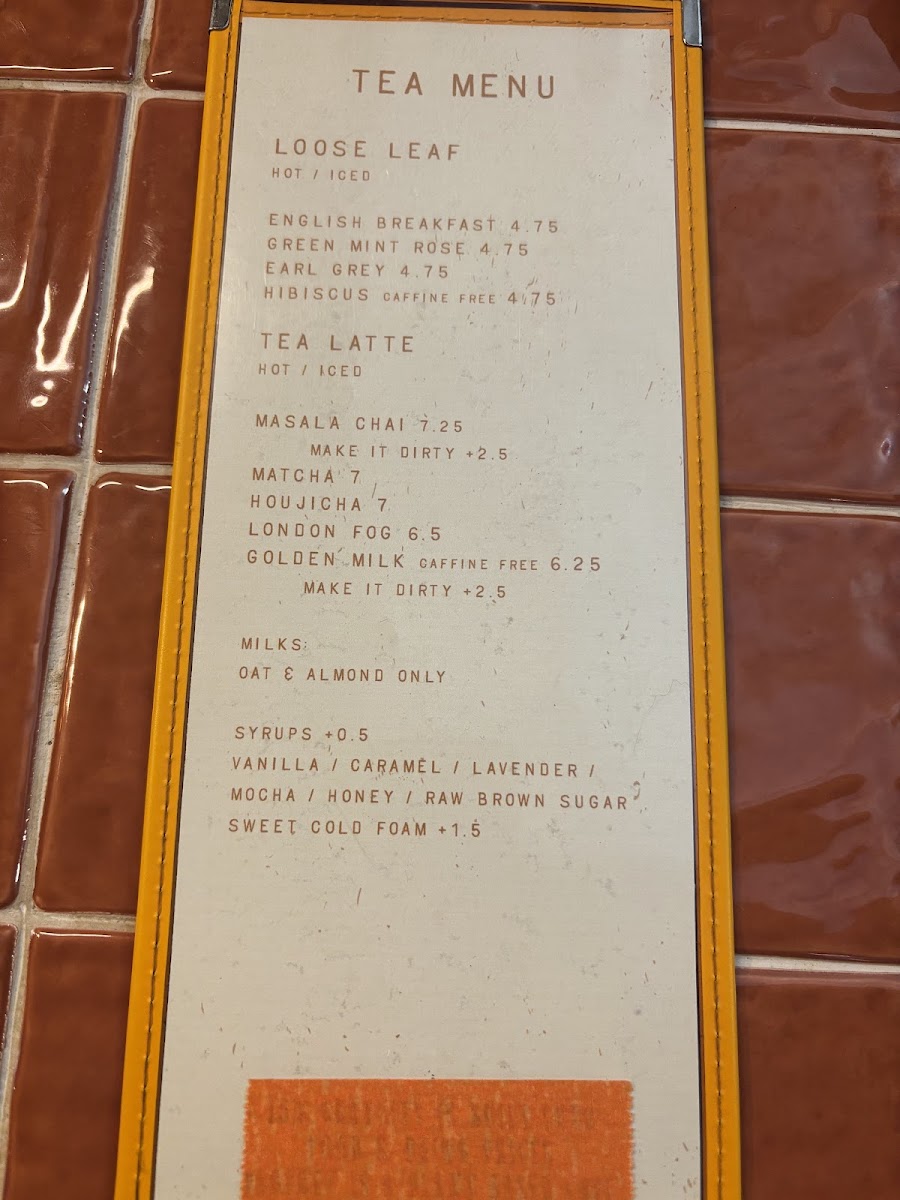 TEA MENU
LOOSE LEAF
HOT / ICED
ENGLISH BREAKFAST 4.75
GREEN MINT ROSE 4.75
EARL GREY 4.75
HIBISCUS CAFFINE FREE 4.75
TEA LATTE
HOT / ICED
MASALA CHAI 7.25
MAKE IT DIRTY +2.5
MATCHA 7
HOUJICHA 7
LONDON FOG 6.5
GOLDEN MILK CAFFINE FREE 6.25
MAKE IT DIRTY +2.5
MILKS:
OAT & ALMOND ONLY
SYRUPS +0.5
VANILLA / CARAMEL / LAVENDER /
MOCHA / HONEY / RAW BROWN SUGAR
SWEET COLD FOAM +1.5